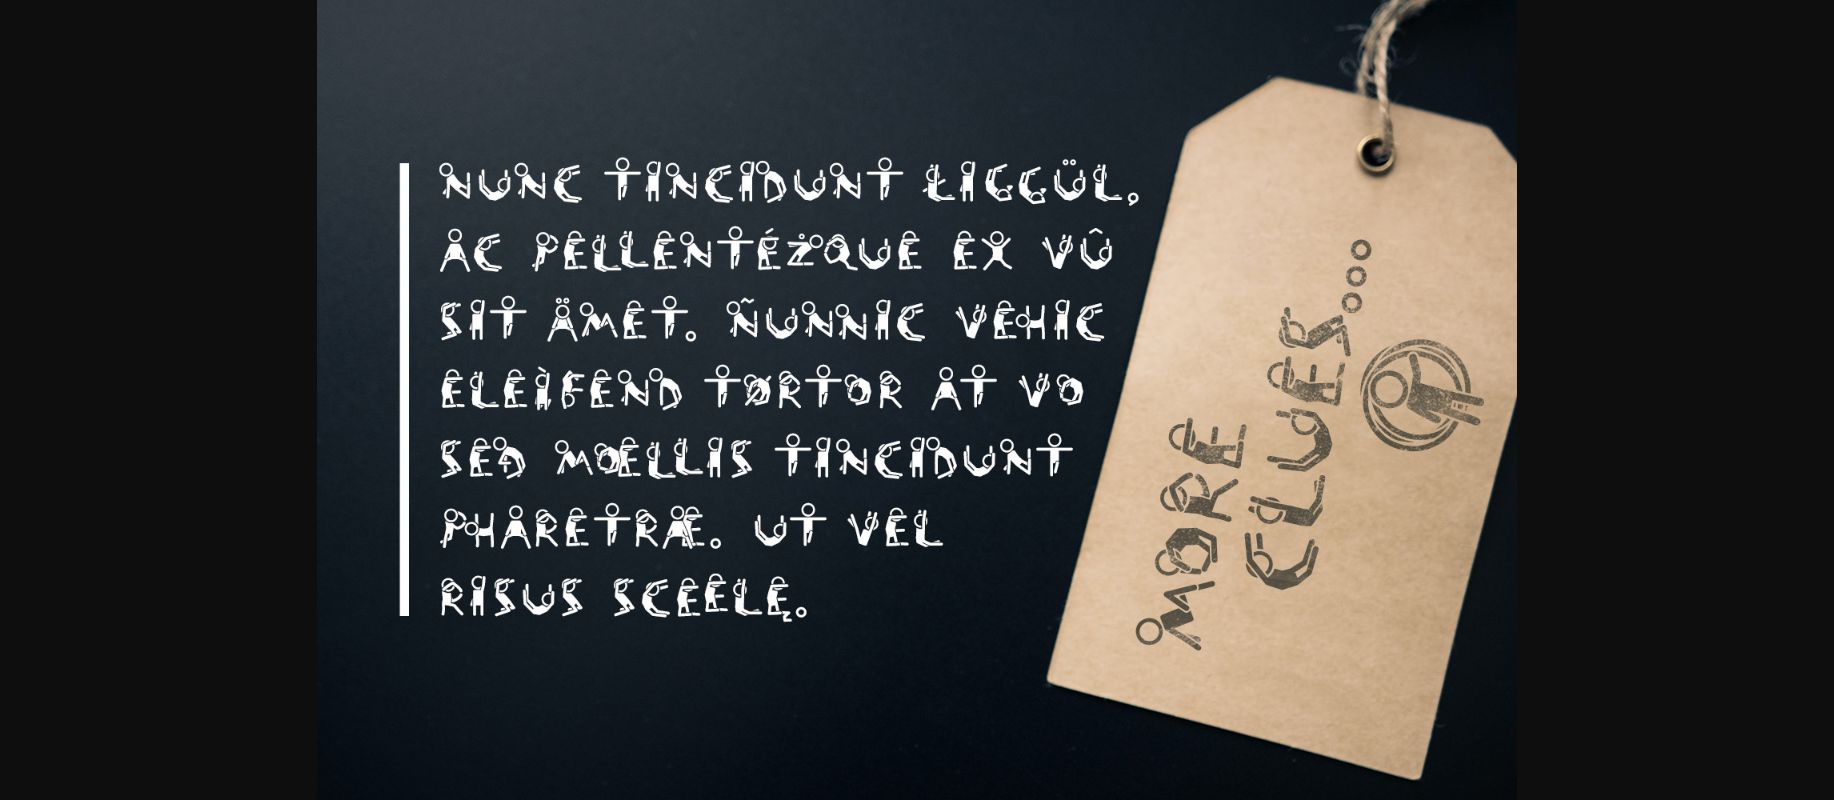 NUNC TINCIDUNT ŁIGGÜL,
AC PELLENTÉŻQUE EX VÛ
SIT ÄMET. ÑUNNIC VEHIC
ELEÌFEND TØRTOR AT VO
SED MŒLLIS TINCIDUNT
PHARETRÆ. UT VEL
RISUS SCEELĘ.
MORE
CLUES...